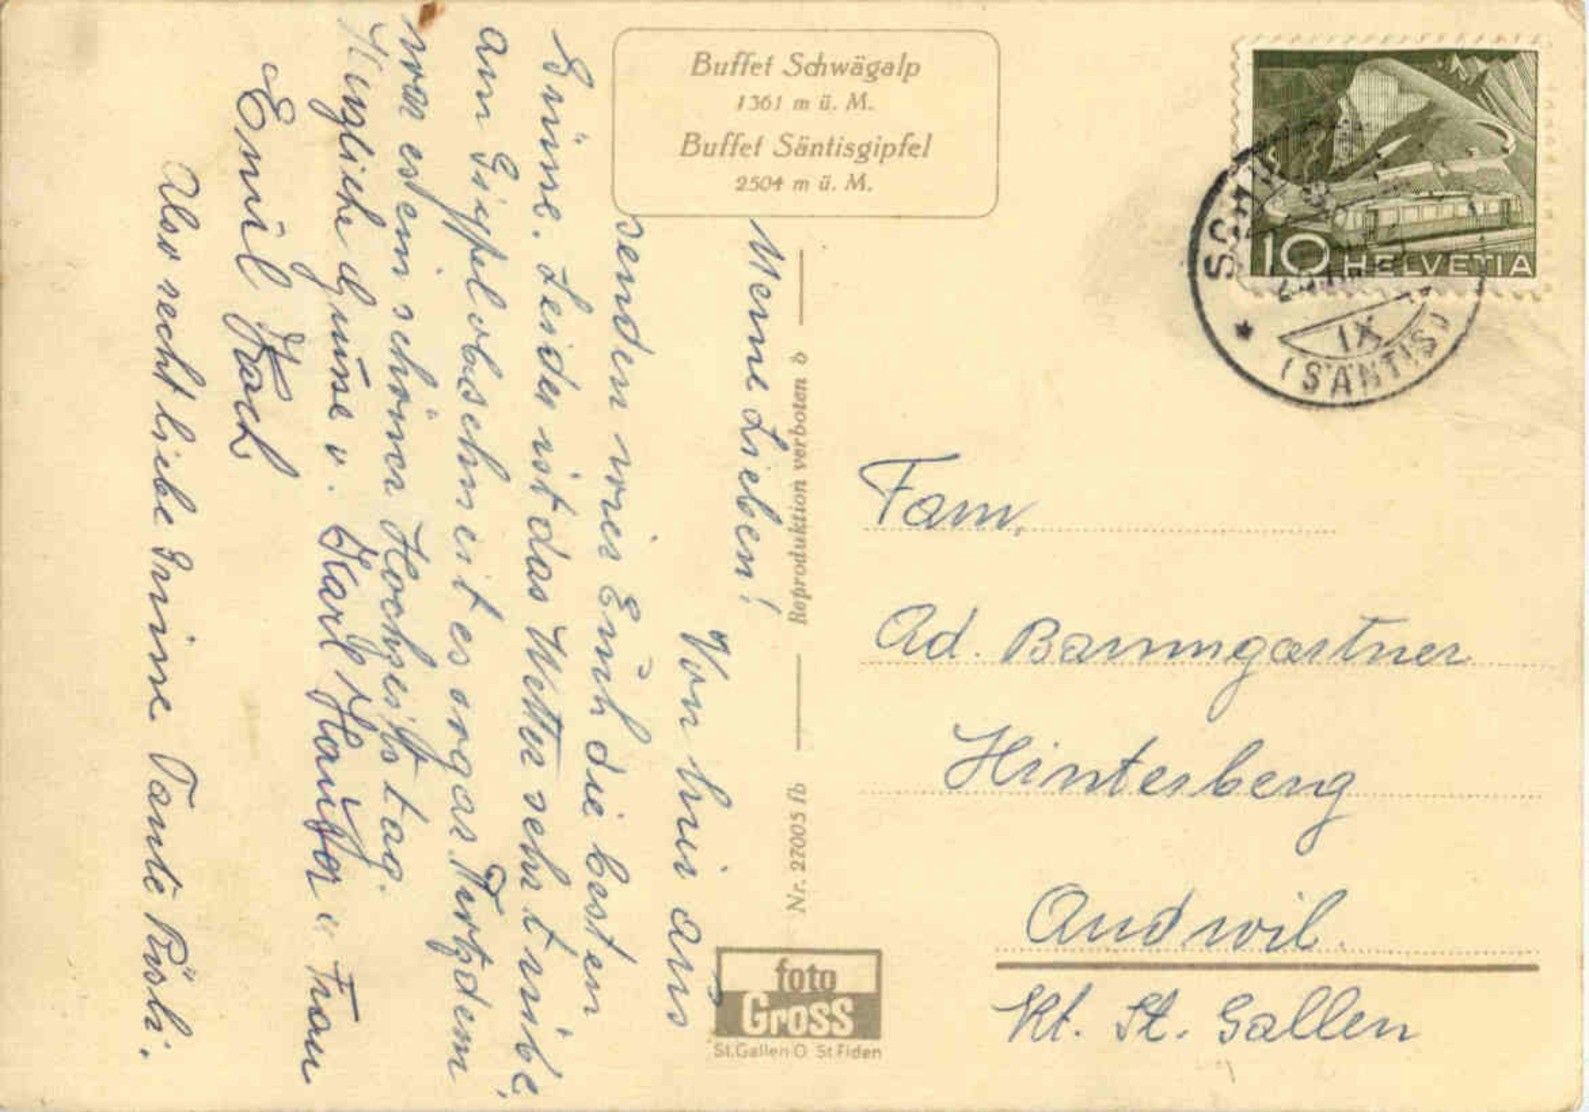 Buffet Schwägalp
1361 m ü. M.
Buffet Säntisgipfel
2504 m ü. M.
Meine Lieben!
Von hier aus
senden wir Euch die besten
Grüsse. Leider ist das Wetter sehr trübe,
am Gipfel obschneit es sogar. Trotzdem
war es ein schöner Hochzeitstag.
Herzliche Grüsse v. Karl u. Frau
Emil Koch
Also recht liebe Grüsse Tante Rösli.
Reproduktion verboten
Nr. 27005 fb
foto
Gross
St.Gallen O St Fiden
10 HELVETIA
IX
(SÄNTIS)
Fam.
Ad. Baumgartner
Hinterberg
Andwil.
Kt. St. Gallen